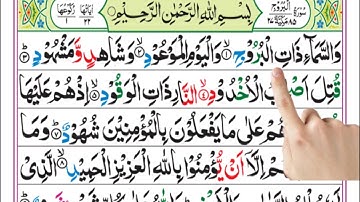 سُوْرَةُ الْبُرُوْجِ
بِسْمِ اللّٰهِ الرَّحْمٰنِ الرَّحِيْمِ
وَالسَّمَآءِ ذَاتِ الْبُرُوْجِ ۙ۝۱ وَالْيَوْمِ الْمَوْعُوْدِ ۙ۝۲ وَشَاهِدٍ وَّمَشْهُوْدٍ ؕ۝۳
قُتِلَ اَصْحٰبُ الْاُخْدُوْدِ ۙ۝۴ النَّارِ ذَاتِ الْوَقُوْدِ ۙ۝۵ اِذْ هُمْ عَلَيْهَا
هُمْ عَلٰى مَا يَفْعَلُوْنَ بِالْمُؤْمِنِيْنَ شُهُوْدٌ ؕ۝۷ وَمَا
هُمْ اِلَّاۤ اَنْ يُّؤْمِنُوْا بِاللّٰهِ الْعَزِيْزِ الْحَمِيْدِ ۙ۝۸ الَّذِيْ